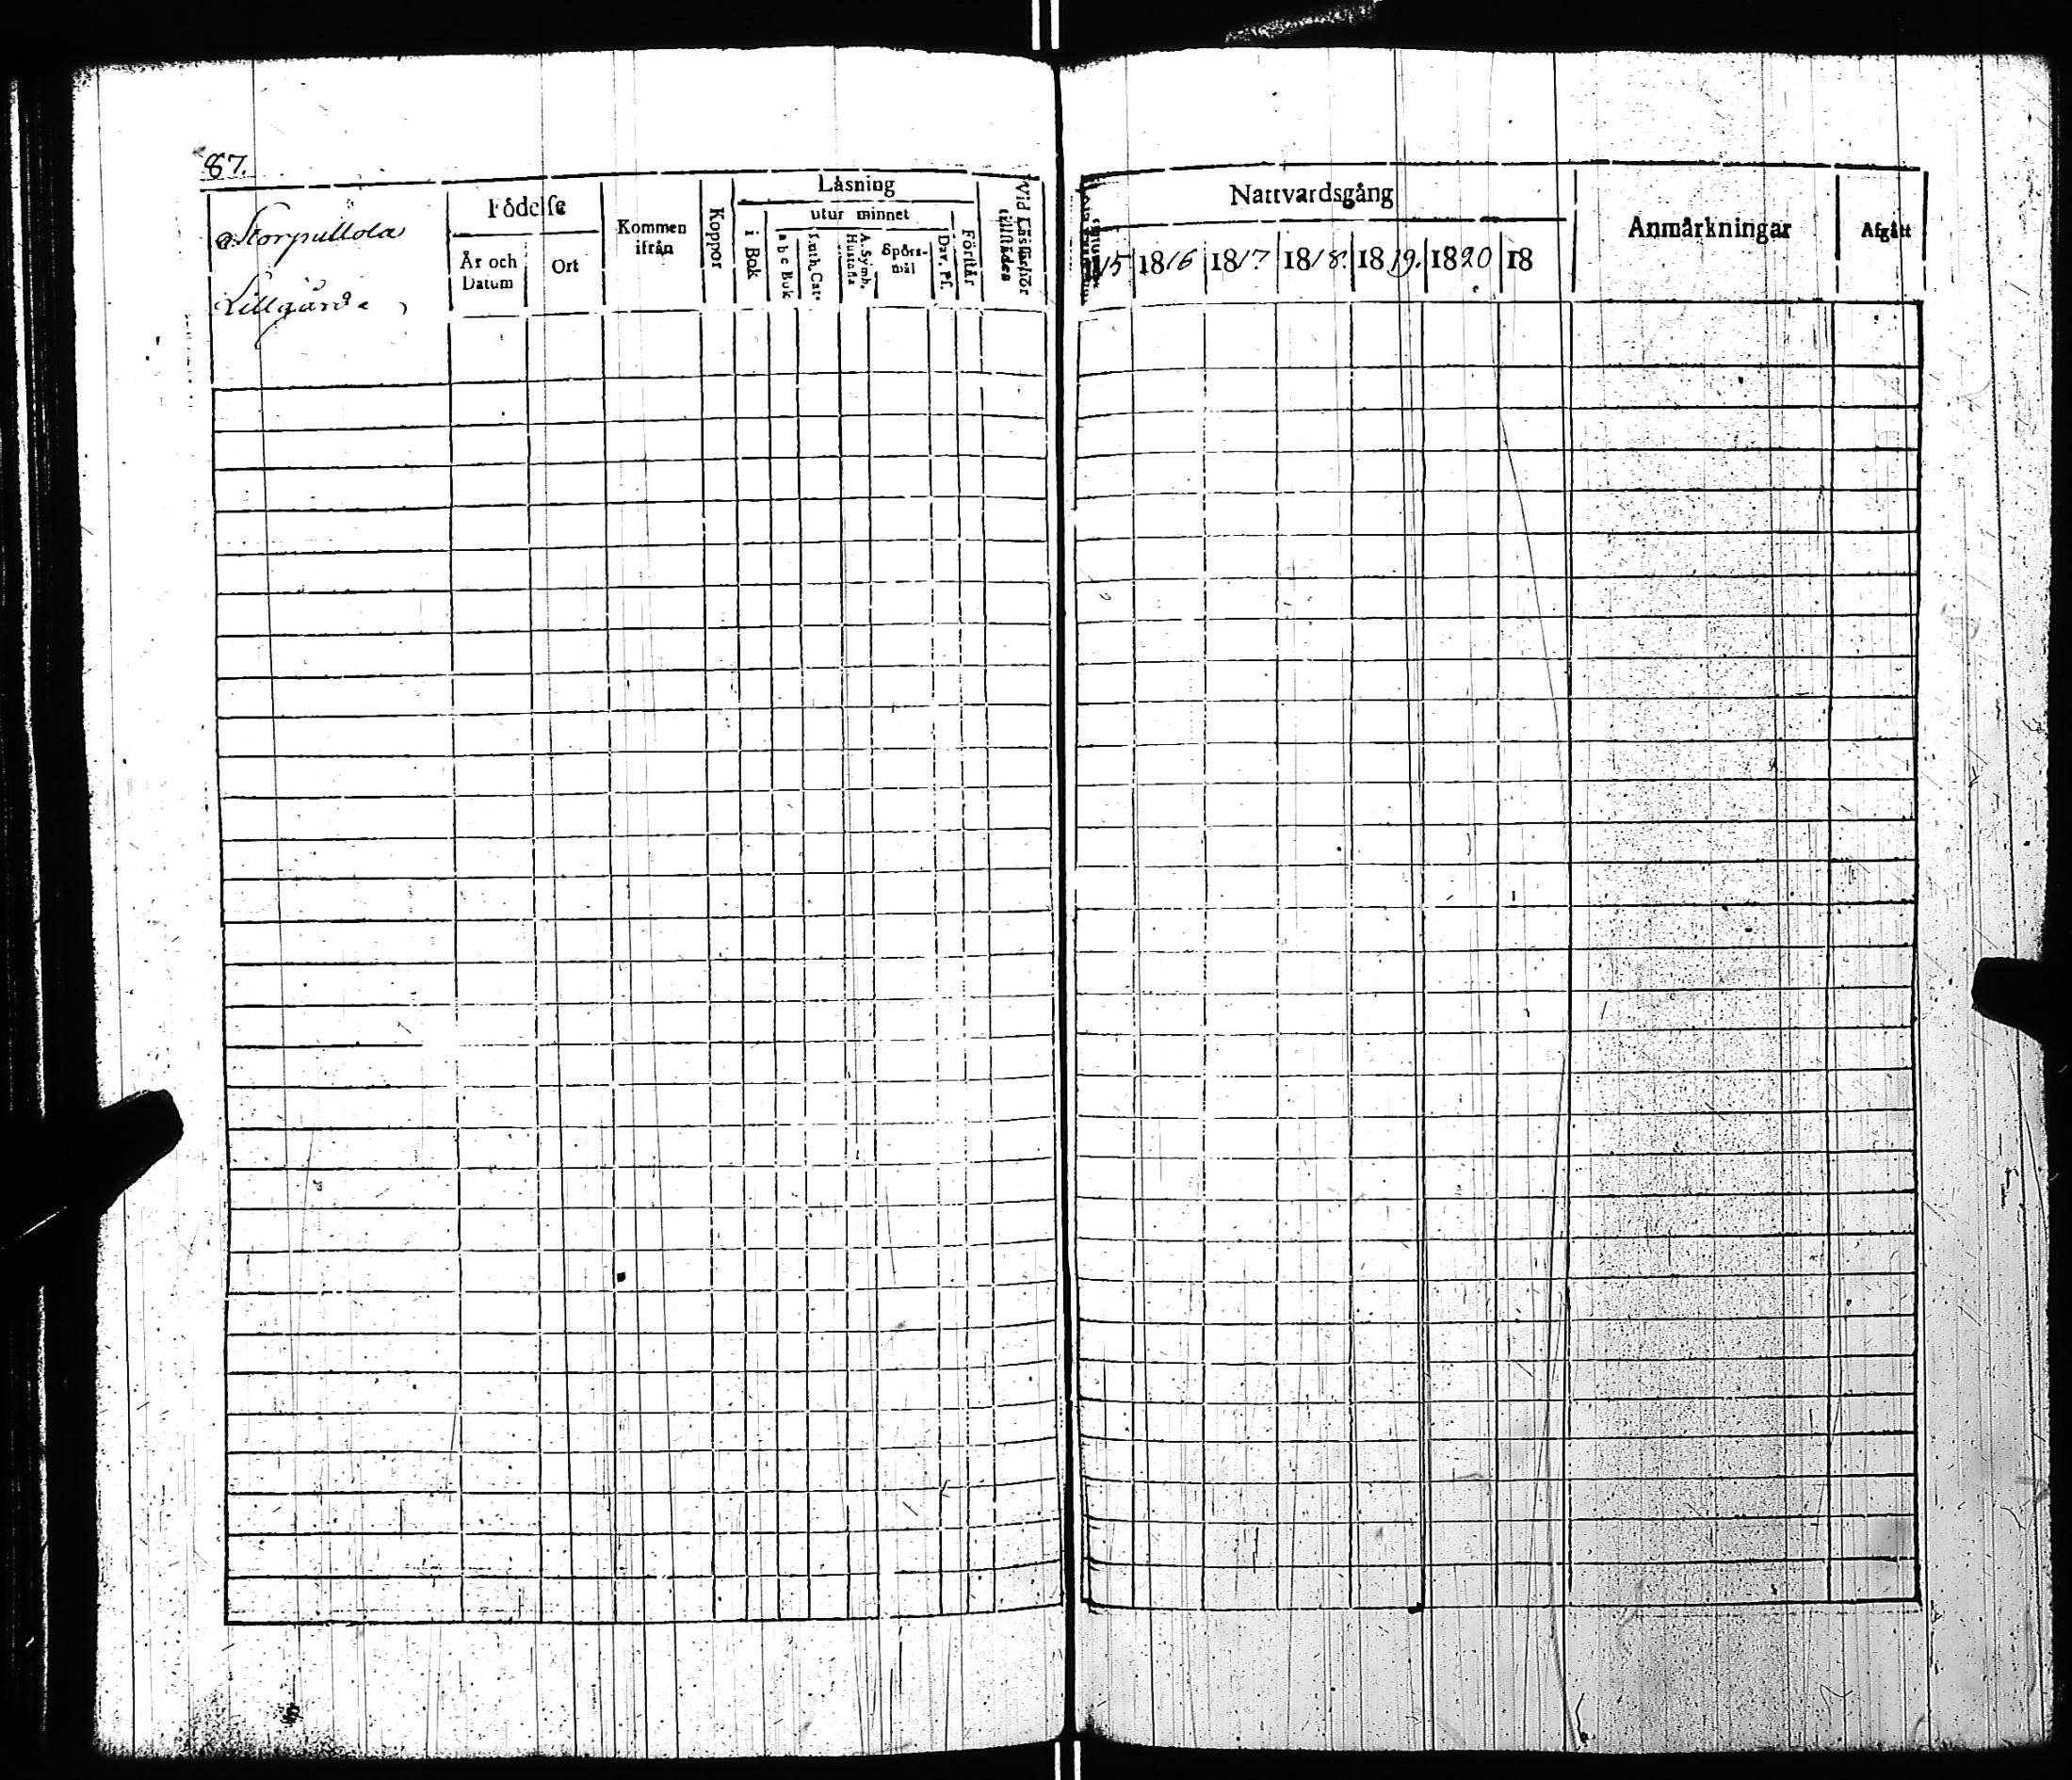 87.
Storpullola
Lillgårds
Fôdelse
År och Datum
Ort
Kommen ifrån
Koppor
Låsning
i Bok
utur minnet
a b c Bok
Luth. Cat.
A. Symb. Hustafla
Spôrs-mål
Dav. Ps.
Förstår
Vid Låsförhör tillstådes
Nattvardsgång
15
1816
1817
1818.
1819.
1820
18
Anmårkningar
Afgått